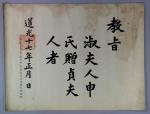 教旨
淑夫人申
氏贈貞夫
人者
道光十七年正月 日